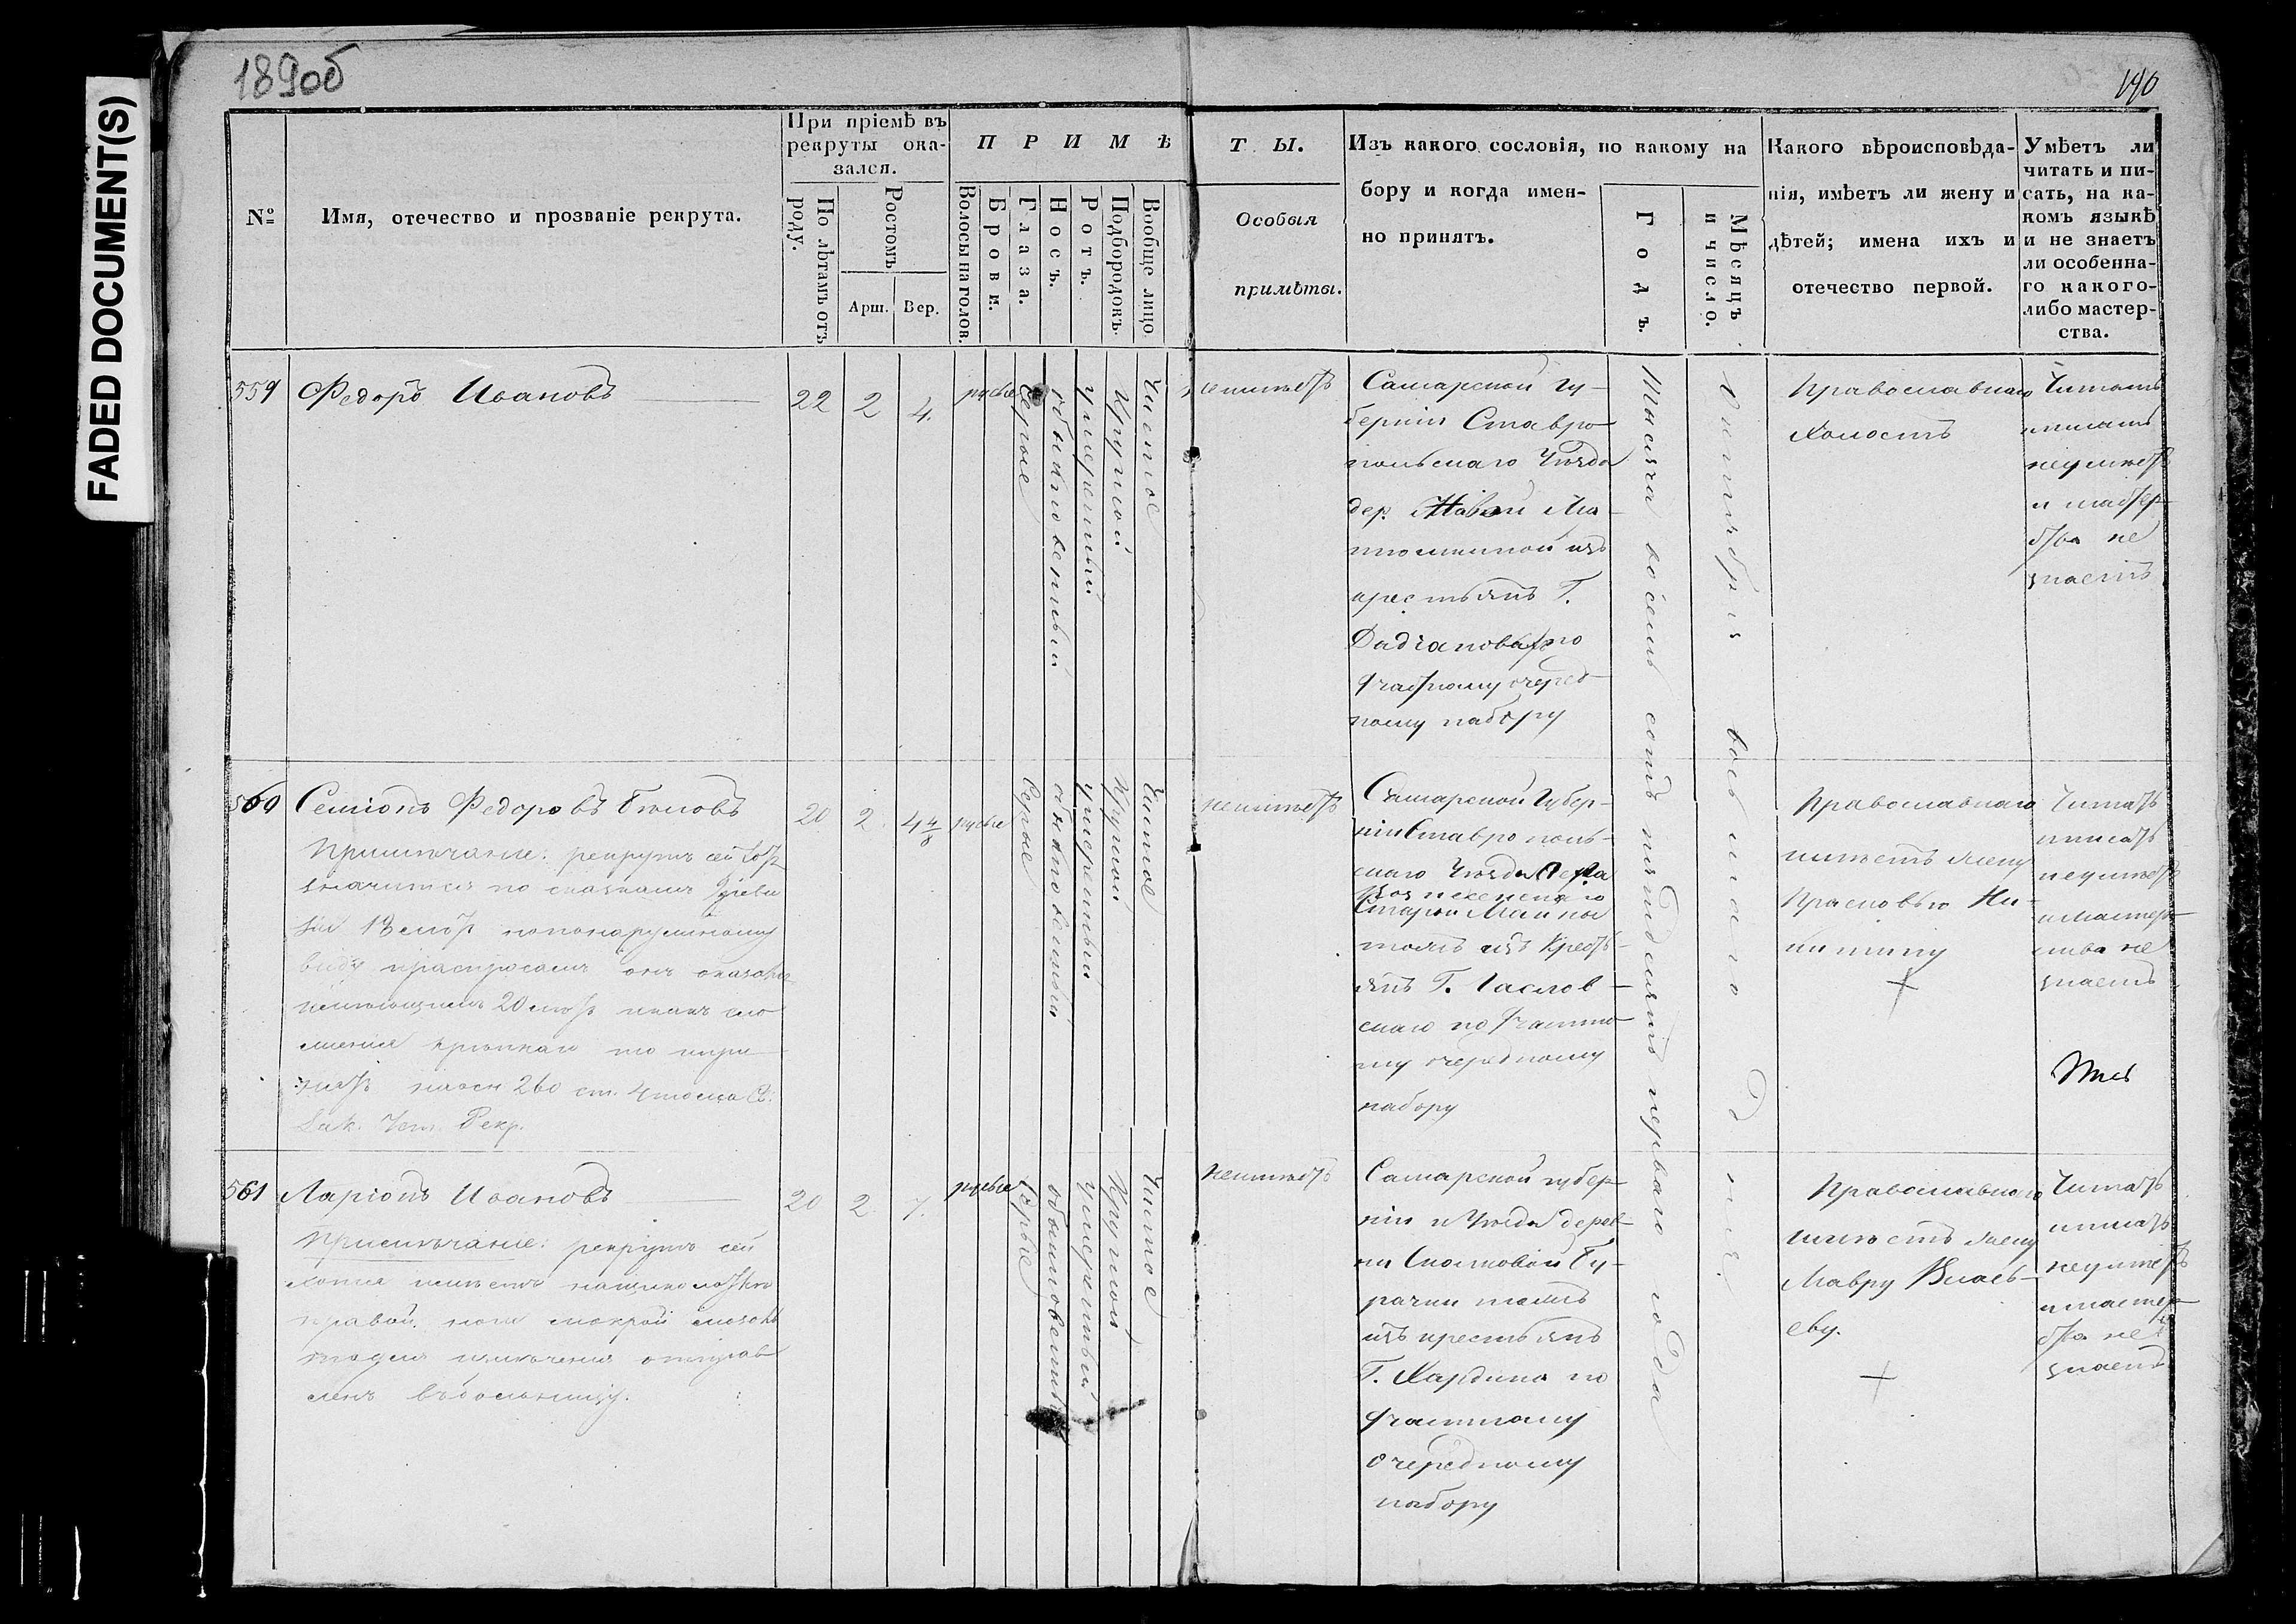 FADED DOCUMENT(S)
189об
190
№
Имя, отечество и прозваніе рекрута.
При пріемѣ въ
рекруты ока-
зался.
По лѣтамъ отъ
роду.
Ростомъ
Арш.
Вер.
П Р И М Ѣ
Волосы на голов.
Брови.
Глаза.
Носъ.
Ротъ.
Подбородокъ.
Вообще лицо
Т Ы.
Особыя
примѣты.
Изъ какого сословія, по какому на
бору и когда имен-
но принятъ.
Годъ.
Мѣсяцъ
и число.
Какого вѣроисповѣда-
нія, имѣетъ ли жену и
дѣтей; имена ихъ и
отечество первой.
Умѣетъ ли
читать и пи-
сать, на ка-
комъ языкѣ
и не знаетъ
ли особенна-
го какого-
либо мастер-
ства.
559
Федоръ Ивановъ
22
2
4.
русые
Серые
обыкновенный
умеренный
Круглой
Чистое
неимѣетъ
Самарской гу-
берніи Ставро-
польскаго Уѣзда
дер. Новой Ма-
тюшкиной изъ
крестьянъ Г.
Дадіановыхъ по
Участному очеред-
ному набору
Тысяча восемь сотъ пятдесятъ перваго года
Октября восьмаго дня.
Православнаго
Холостъ
Читать
писать
неумѣетъ
и мастер-
ства не
знаетъ
560
Семіонъ Федоровъ
Примѣчаніе: рекрутъ сей хотя
значится по сказкамъ
18 лѣтъ по наружному
виду
имѣющимъ 20 лѣтъ
сложенія крѣпкаго то
260 ст. 4 тома Св:
Зак. Уст. Рекр.
20
2
4 4/8
русые
Серые
обыкновенный
умеренный
Круглой
Чистое
неимѣетъ
Самарской Губер-
ніи Ставрополь-
скаго Уѣзда
Старой Майны
тожъ изъ Кресть-
янъ Г.
скаго по Участно-
му очередному
набору
Православнаго
имѣетъ жену
Прасковью Ни-
китину
Читать
писать
неумѣетъ
и мастер-
ства не
знаетъ
561
Ларіонъ Ивановъ
Примѣчаніе: рекрутъ сей
хотя имѣетъ
правой ноги мокрой
для излѣченія отправ-
ленъ въ больницу.
20
2
7.
русые
Серые
обыкновенный
умеренный
Круглой
Чистое
неимѣетъ
Самарской губер-
ніи и Уѣзда дерев-
ни
тожъ
изъ крестьянъ
Г. Хардина по
Участному
очередному
набору
Православнаго
имѣетъ жену
Мавру Влась-
еву.
Читать
писать
неумѣетъ
и мастер-
ства не
знаетъ